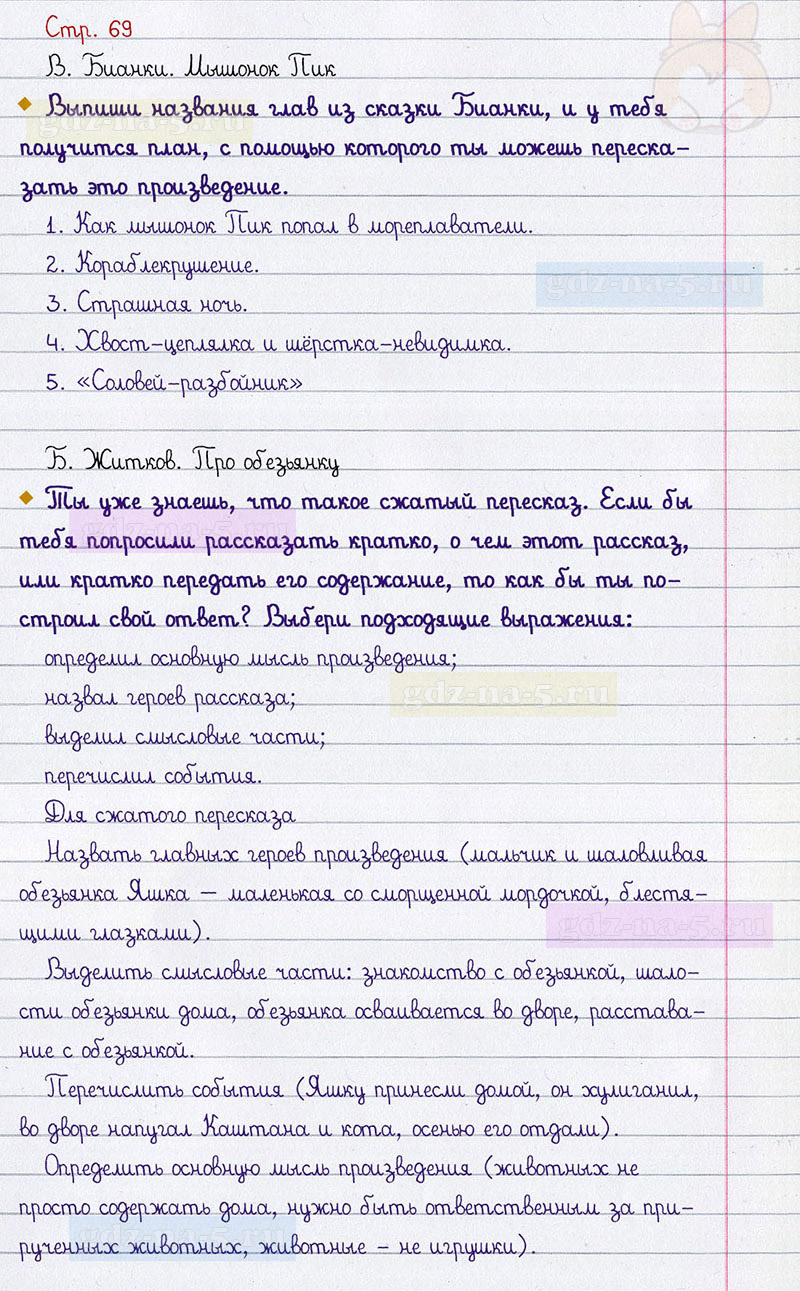 Стр. 69
В. Бианки. Мышонок Пик
Выпиши названия глав из сказки Бианки, и у тебя
получится план, с помощью которого ты можешь переска-
зать это произведение.
1. Как мышонок Пик попал в мореплаватели.
2. Кораблекрушение.
gdz-na-5.ru
3. Страшная ночь.
4. Хвост-цеплялка и шёрстка-невидимка.
5. «Соловей-разбойник»
Б. Житков. Про обезьянку
Ты уже знаешь, что такое сжатый пересказ. Если бы
тебя попросили рассказать кратко, о чем этот рассказ,
или кратко передать его содержание, то как бы ты по-
строил свой ответ? Выбери подходящие выражения:
определил основную мысль произведения;
назвал героев рассказа;
gdz-na-5.ru
выделил смысловые части;
перечислил события.
Для сжатого пересказа
Назвать главных героев произведения (мальчик и шаловливая
обезьянка Яшка — маленькая со сморщенной мордочкой, блестя-
щими глазками).
gdz-na-5.ru
Выделить смысловые части: знакомство с обезьянкой, шало-
сти обезьянки дома, обезьянка осваивается во дворе, расстава-
ние с обезьянкой.
Перечислить события (Яшку принесли домой, он хулиганил,
во дворе напугал Каштана и кота, осенью его отдали).
Определить основную мысль произведения (животных не
просто содержать дома, нужно быть ответственным за при-
рученных животных, животные – не игрушки).